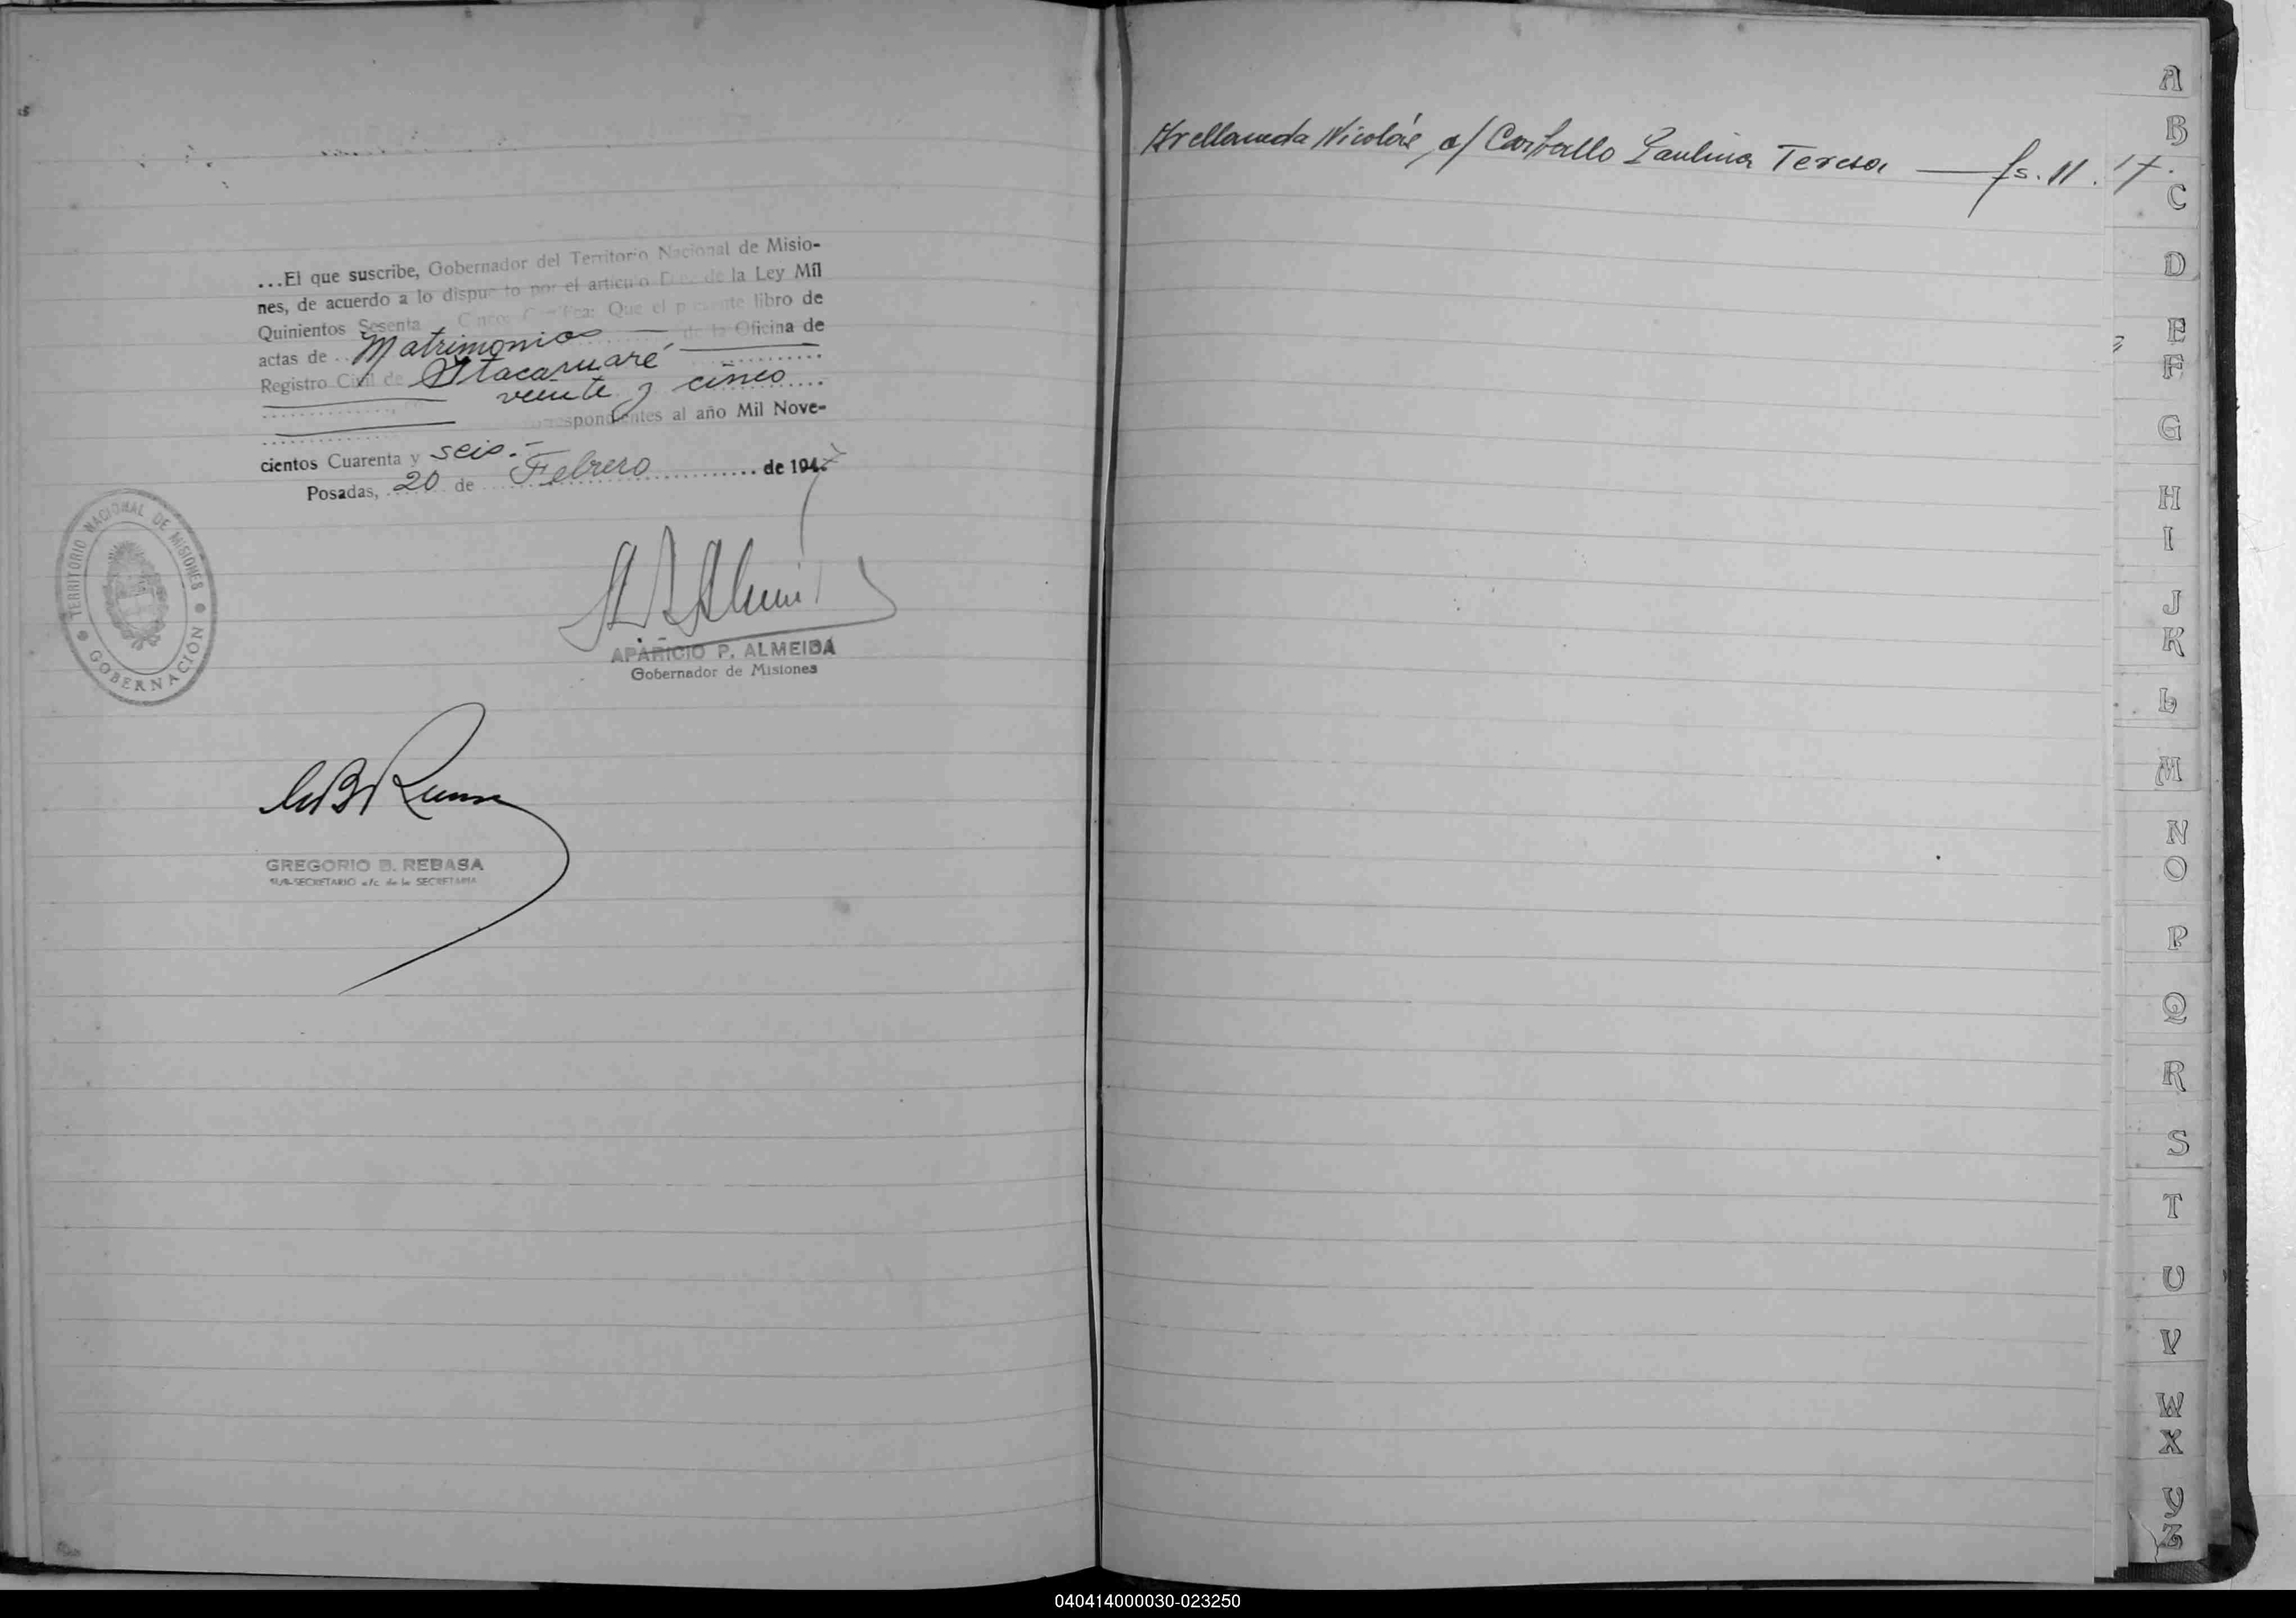 ...El que suscribe, Gobernador del Territorio Nacional de Misio-
nes, de acuerdo a lo dispuesto por el articulo Diez de la Ley Mil
Quinientos Sesenta Cinco Certifica: Que el presente libro de
actas de Matrimonios de la Oficina de
Registro Civil de Itacaruaré
veinte y cinco
correspondientes al año Mil Nove-
cientos Cuarenta y seis.-
Posadas, 20 de Febrero de 1947
TERRITORIO NACIONAL DE MISIONES
GOBERNACIÓN
APARICIO P. ALMEIDA
Gobernador de Misiones
GREGORIO B. REBASA
SUB-SECRETARIO a/c. de la SECRETARIA
Nicolás, c/ Carballo Paulina Teresa — fs. 11. 17.
A
B
C
D
E
F
G
H
I
J
K
L
M
N
O
P
Q
R
S
T
U
V
W
X
Y
Z
040414000030-023250